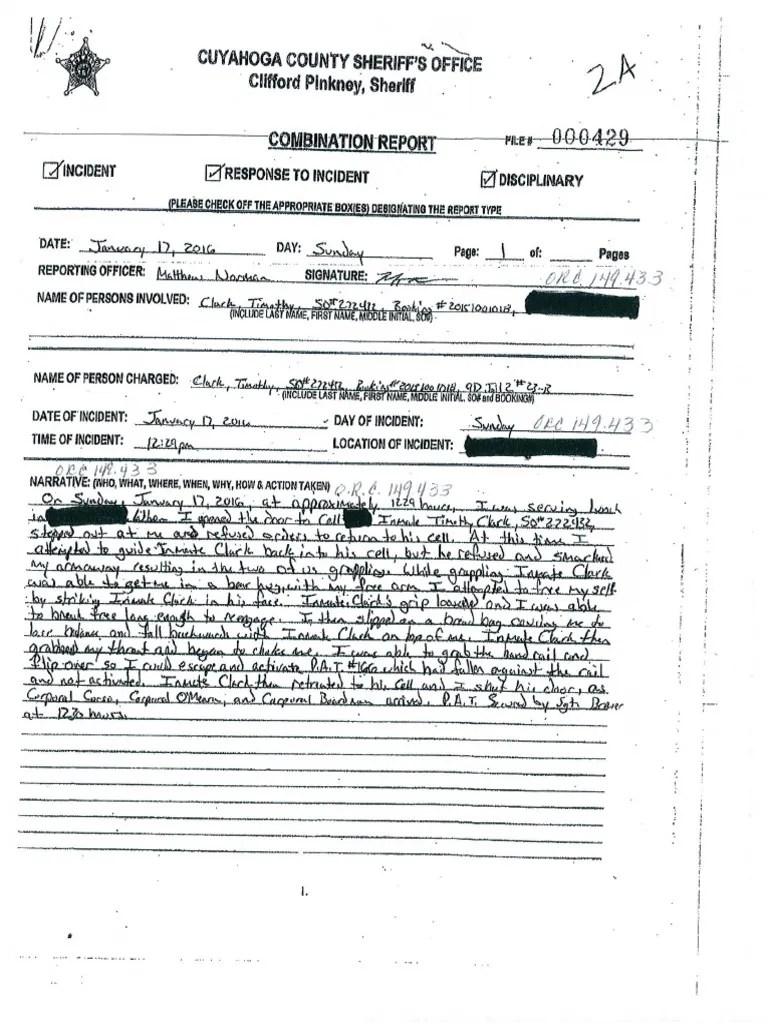 CUYAHOGA COUNTY SHERIFF'S OFFICE
Clifford Pinkney, Sheriff
2A
COMBINATION REPORT FILE # 000429
INCIDENT RESPONSE TO INCIDENT DISCIPLINARY
(PLEASE CHECK OFF THE APPROPRIATE BOX(ES) DESIGNATING THE REPORT TYPE
DATE: January 17, 2016 DAY: Sunday Page: 1 of: Pages
REPORTING OFFICER: Matthew Norman SIGNATURE: O.R.C. 149.433
NAME OF PERSONS INVOLVED: Clark, Timothy, SO# 272432, Booking # 20151001018,
(INCLUDE LAST NAME, FIRST NAME, MIDDLE INITIAL, SO#)
NAME OF PERSON CHARGED: Clark, Timothy, SO# 272432, Booking#
(INCLUDE LAST NAME, FIRST NAME, MIDDLE INITIAL, SO# and BOOKING#)
DATE OF INCIDENT: January 17, 2016 DAY OF INCIDENT: Sunday ORC 149.433
TIME OF INCIDENT: 12:29pm LOCATION OF INCIDENT:
ORC 149.433
NARRATIVE: (WHO, WHAT, WHERE, WHEN, WHY, HOW & ACTION TAKEN) O.R.C. 149.433
On Sunday, January 17, 2016, at approximately 1229 hours, I was serving lunch
in When I opened the door to Cell Inmate Timothy Clark, SO# 272432,
stepped out at me and refused orders to return to his cell. At this time I
attempted to guide Inmate Clark back into his cell, but he refused and smacked
my arm away resulting in the two of us grappling. While grappling Inmate Clark
was able to get me in a bear hug, with my free arm I attempted to free my self
by striking Inmate Clark in his face. Inmate Clark's grip loosened and I was able
to break free long enough to reengage. I then slipped on a bread bag causing me to
lose balance and fall backwards with Inmate Clark on top of me. Inmate Clark then
grabbed my throat and began to choke me. I was able to grab the hand rail and
flip over so I could escape and activate P.A.T. #166 which had fallen against the rail
and not activated. Inmate Clark then retreated to his cell and I shut his door, as
Corporal Corso, Corporal O'Mearn, and Corporal Boardman arrived. P.A.T. Secured by Sgt.
at 1230 hours.
1.